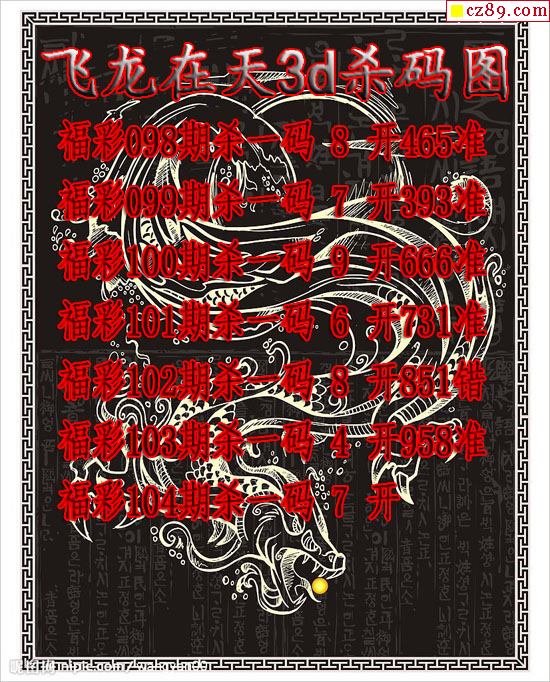 cz89.com
飞龙在天3d杀码图
福彩098期杀一码 8 开465准
福彩099期杀一码 7 开393准
福彩100期杀一码 9 开666准
福彩101期杀一码 6 开731准
福彩102期杀一码 8 开851错
福彩103期杀一码 4 开958准
福彩104期杀一码 7 开